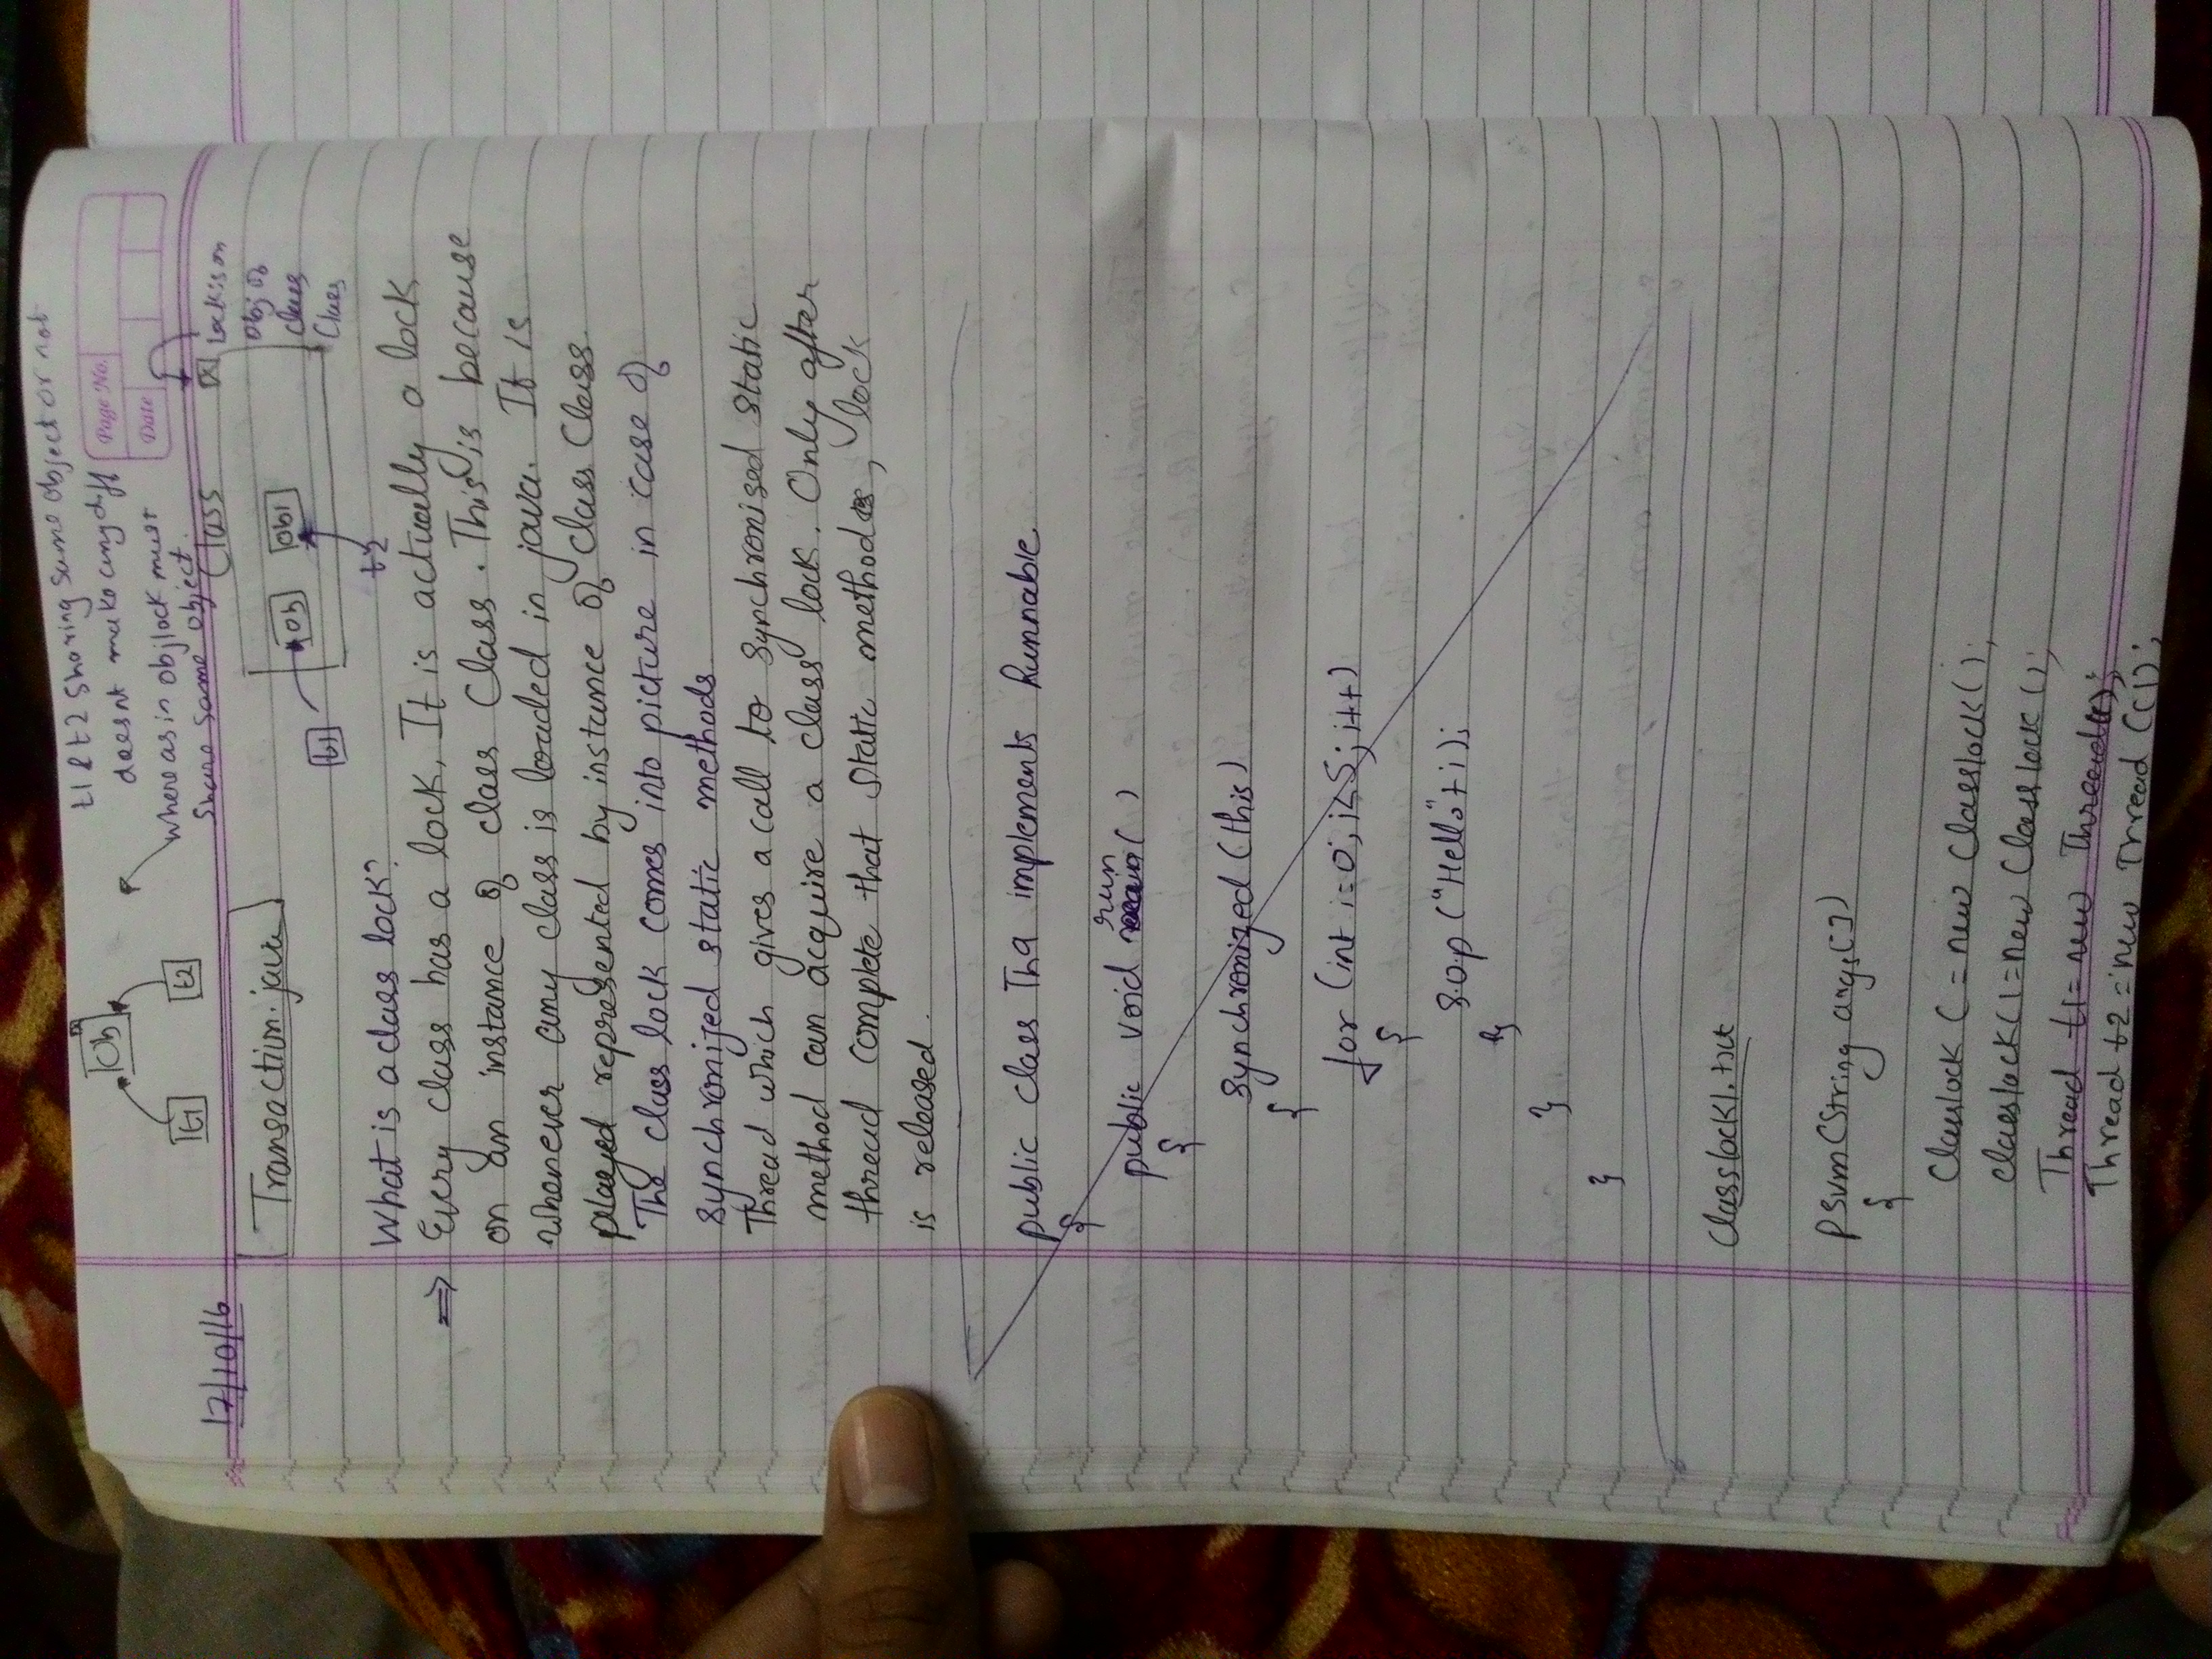 t1 & t2 Sharing same object or not
doesnt make any diff
where as in objlock must
Share same object.
Ob
t1
t2
Page No.
Date
17/10/16
Transaction.java
Class
Ob
Ob1
t1
t2
lock is on
obj of
class
Class
What is a class lock?
⇒ Every class has a lock. It is actually a lock
on an instance of class Class. This is because
whenever any class is loaded in java. It is
represented by instance of class Class.
The class lock comes into picture in case of
synchronized static methods
Thread which gives a call to synchronised static
method can acquire a class lock. Only after
thread complete that static method, lock
is released.
public class Th9 implements Runnable
{
public void run()
{
synchronized (this)
{
for (int i=0; i<5; i++)
{
S.o.p ("Hello"+i);
}
}
}
Classlock1.txt
psvm(String args[])
{
Classlock C = new Classlock();
classlock C1 = new Classlock();
Thread t1 = new Thread(C);
Thread t2 = new Thread (C1);